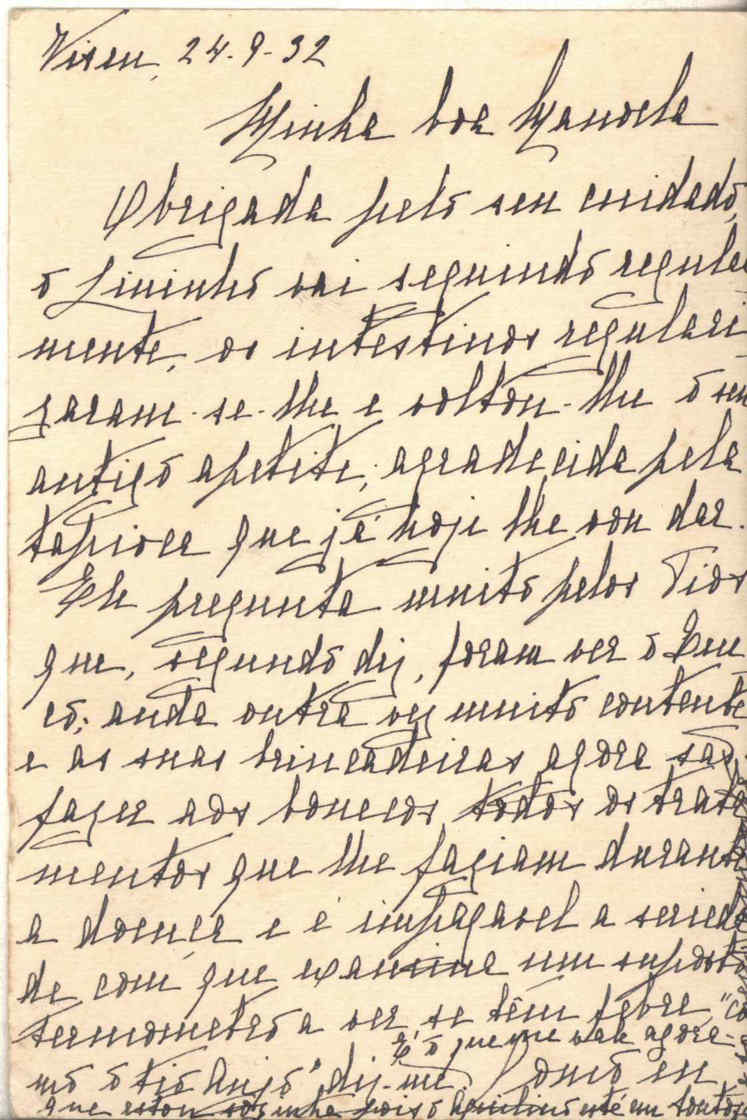 Viseu, 24-9-32
Minha boa Manoela
Obrigada pelo seu cuidado,
o Lininho vai seguindo regular
mente, os intestinos regulari
saram-se-lhe e voltou-lhe o seu
antigo apetite; agradecida pela
tapioca que já hoje lhe vou dar.
Ele pregunta muito pelos Tios
que, segundo diz, foram ver o
co; anda outra vez muito contente
e as suas brincadeiras agora são
fazer aos bonecos todos os trata
mentos que lhe faziam durante
a doença e é impagavel a serieda
de com que examina um suposto
termometro a ver se tem febre, "co
mo o tio Anjo", diz-me. Como eu
é o que me vale agora
que estou sosinha pois o até um